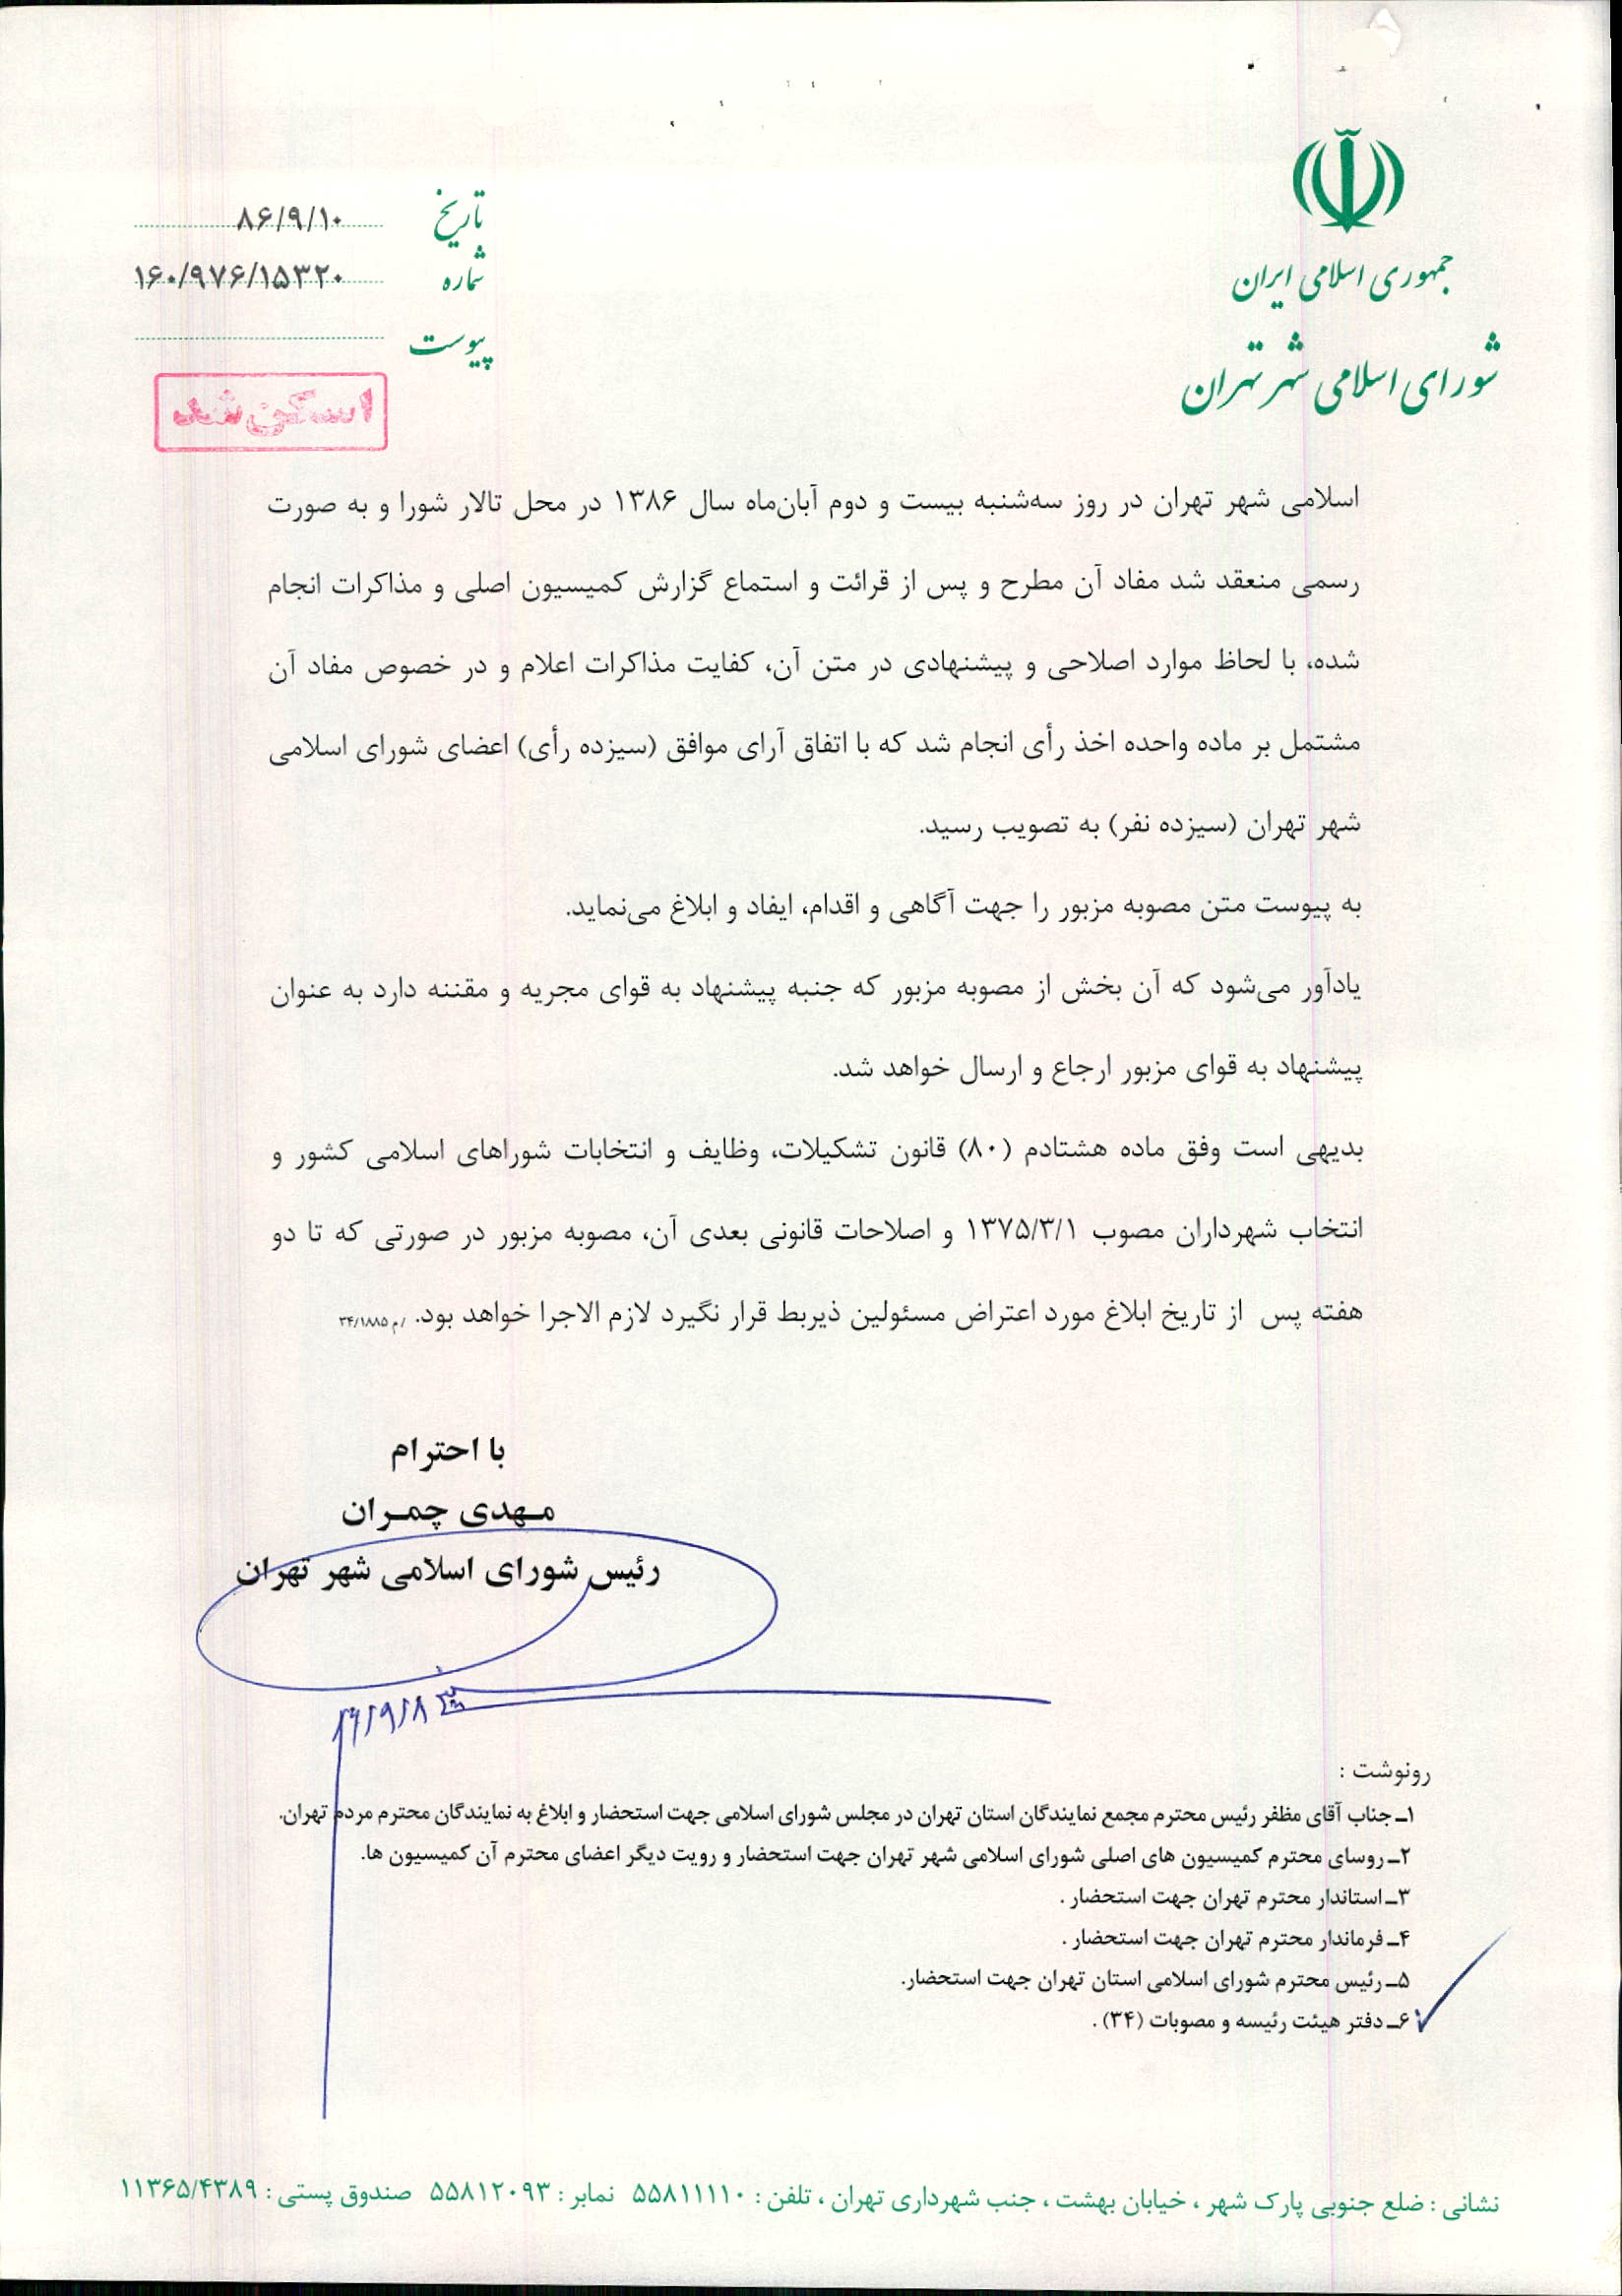 جمهوری اسلامی ایران
شورای اسلامی شهر تهران
تاریخ ۸۶/۹/۱۰
شماره ۱۶۰/۹۷۶/۱۵۳۲۰
پیوست
اسکن شد
اسلامی شهر تهران در روز سه‌شنبه بیست و دوم آبان‌ماه سال ۱۳۸۶ در محل تالار شورا و به صورت
رسمی منعقد شد مفاد آن مطرح و پس از قرائت و استماع گزارش کمیسیون اصلی و مذاکرات انجام
شده، با لحاظ موارد اصلاحی و پیشنهادی در متن آن، کفایت مذاکرات اعلام و در خصوص مفاد آن
مشتمل بر ماده واحده اخذ رأی انجام شد که با اتفاق آرای موافق (سیزده رأی) اعضای شورای اسلامی
شهر تهران (سیزده نفر) به تصویب رسید.
به پیوست متن مصوبه مزبور را جهت آگاهی و اقدام، ایفاد و ابلاغ می‌نماید.
یادآور می‌شود که آن بخش از مصوبه مزبور که جنبه پیشنهاد به قوای مجریه و مقننه دارد به عنوان
پیشنهاد به قوای مزبور ارجاع و ارسال خواهد شد.
بدیهی است وفق ماده هشتادم (۸۰) قانون تشکیلات، وظایف و انتخابات شوراهای اسلامی کشور و
انتخاب شهرداران مصوب ۱۳۷۵/۳/۱ و اصلاحات قانونی بعدی آن، مصوبه مزبور در صورتی که تا دو
هفته پس از تاریخ ابلاغ مورد اعتراض مسئولین ذیربط قرار نگیرد لازم الاجرا خواهد بود. /م ۳۴/۱۸۸۵
با احترام
مـهدی چمـران
رئیس شورای اسلامی شهر تهران
۸۶/۹/۸
رونوشت :
۱ـ جناب آقای مظفر رئیس محترم مجمع نمایندگان استان تهران در مجلس شورای اسلامی جهت استحضار و ابلاغ به نمایندگان محترم مردم تهران.
۲ـ روسای محترم کمیسیون های اصلی شورای اسلامی شهر تهران جهت استحضار و رویت دیگر اعضای محترم آن کمیسیون ها.
۳ـ استاندار محترم تهران جهت استحضار .
۴ـ فرماندار محترم تهران جهت استحضار .
۵ـ رئیس محترم شورای اسلامی استان تهران جهت استحضار.
۶ـ دفتر هیئت رئیسه و مصوبات (۳۴) .
نشانی : ضلع جنوبی پارک شهر ، خیابان بهشت ، جنب شهرداری تهران ، تلفن : ۵۵۸۱۱۱۱۰ نمابر : ۵۵۸۱۲۰۹۳ صندوق پستی : ۱۱۳۶۵/۴۳۸۹